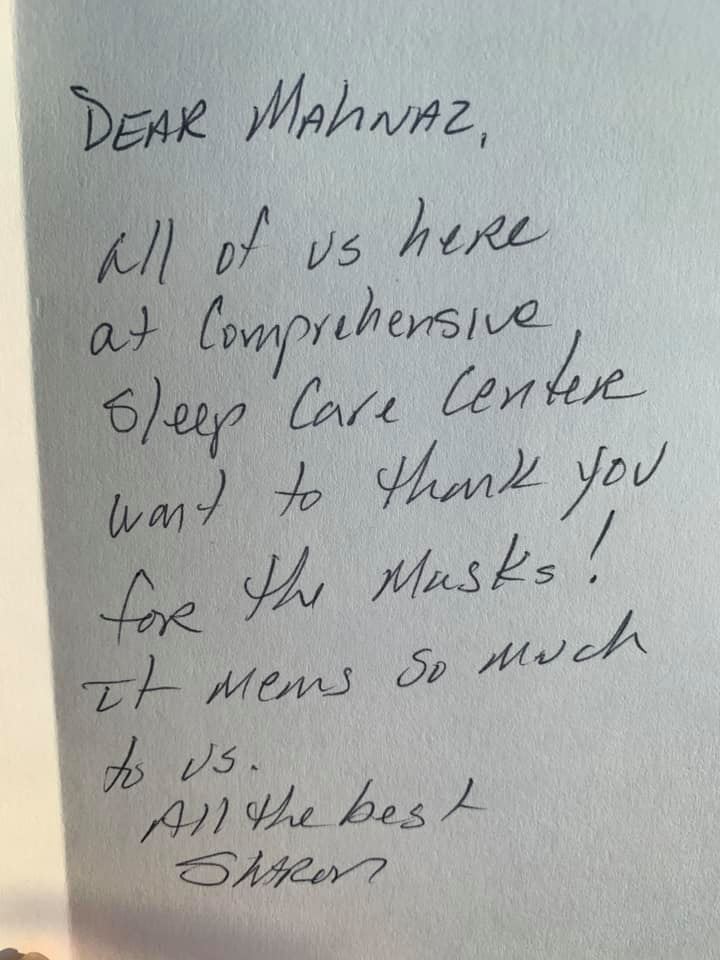 DEAR MAHNAZ,
All of us here
at Comprehensive
Sleep Care Center
want to thank you
for the Masks!
It means so much
to us.
All the best
Sharon